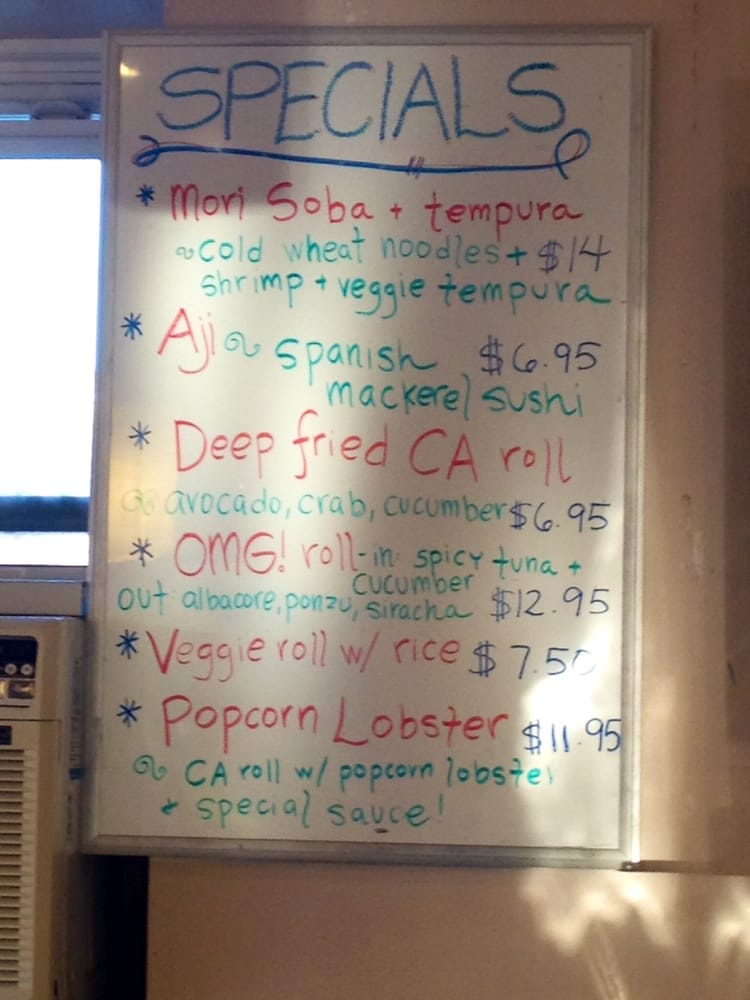 SPECIALS
* Mori Soba + tempura
~cold wheat noodles + $14
shrimp + veggie tempura
* Aji ~ spanish $6.95
mackerel sushi
* Deep fried CA roll
~ avocado, crab, cucumber $6.95
* OMG! roll-in: spicy tuna +
cucumber
out: albacore, ponzu, siracha $12.95
* Veggie roll w/ rice $7.50
* Popcorn Lobster $11.95
~ CA roll w/ popcorn lobster
+ special sauce!